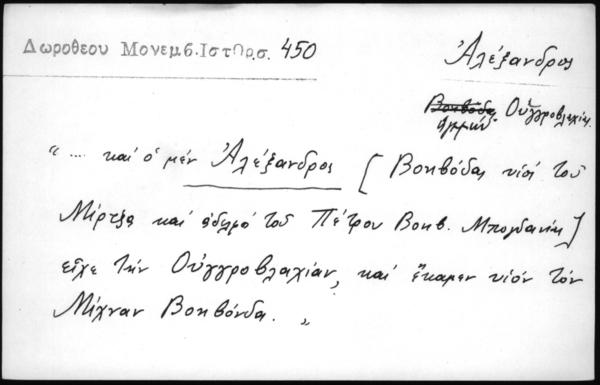 Δωροθεου Μονεμβ.Ιστορ.σ. 450
Ἀλέξανδρος
Βοηβόδας Οὐγγροβλαχίας
ἡγεμών
"... καί ὁ μέν Ἀλέξανδρος [Βοηβόδας υἱός τοῦ
Μίρτζα καί ἀδελφό τοῦ Πέτρου Βοηβ. Μπογδανίας]
εἶχε τήν Οὐγγροβλαχίαν, καί ἔκαμεν υἱόν τόν
Μίχναν Βοηβόνδα. "